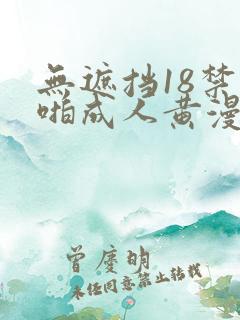 無遮挡18禁
啪成人黄漫
曾庆明
未经同意禁止转载